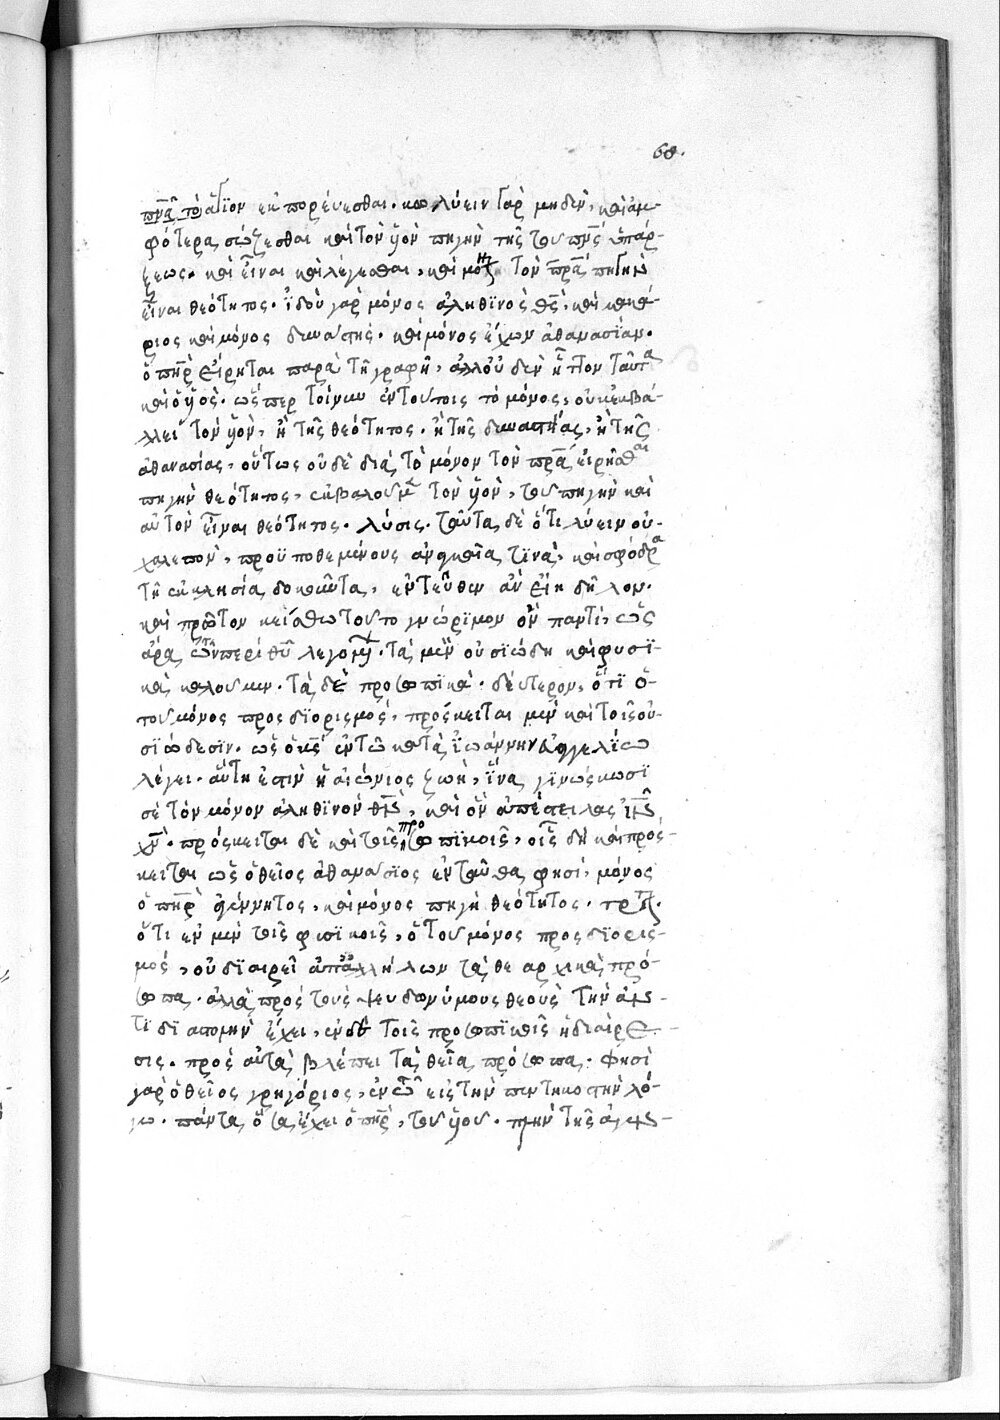 68.
πν̅α̅ τὸ ἅγϊον ἐκπορέυεσθαι. κωλύειν γὰρ μηδὲν, καὶ ἀμ-
φότερα σώζεσθαι καὶ τὸν ὑϊὸν πηγὴν τῆς τοῦ πν̅ς̅ ὑπάρ-
ξεως. καὶ εἶναι καὶ λέγεσθαι, καὶ μὴ τὸν πρ̅α̅ πηγὴν
εἶναι θεότητος. ἰδοὺ γὰρ μόνος ἀληθϊνὸς θς̅, καὶ μακά-
ριος καὶ μόνος δυνάστης. καὶ μόνος ἔχων ἀθανασίαν.
ὁ πη̅ρ̅ εἴρηται παρὰ τῇ γραφῇ, ἀλλ' οὐδὲν ἧττον ταῦτα
καὶ ὁ ὑϊός. ὥσπερ τοίνυν ἐν τούτοις τὸ μόνος, οὐκ ἐκβά-
λλει τὸν ὑϊὸν, ἢ τῆς θεότητος. ἢ τῆς δυναστείας, ἢ τῆς
ἀθανασίας, οὕτως οὐδὲ διὰ τὸ μόνον τὸν πρ̅α̅ εἰρῆσθαι
πηγὴν θεότητος, ἐκβαλοῦμεν τὸν ὑϊὸν, τοῦ πηγὴν καὶ
αὐτὸν εἶναι θεότητος. λύσις. ταῦτα δὲ ὅτι λύειν οὐ-
χαλεπὸν, προϋποθεμένους ἀναγκαῖα τϊνὰ, καὶ σφόδρα
τῇ ἐκκλησίᾳ δοκοῦντα, ἐντεῦθεν ἂν εἴη δῆλον.
καὶ πρῶτον κείσθω τοῦτο γνώρϊμον ὂν παντί, ὡς
ἄρα τῶν περὶ θυ̅ λεγομένων. τὰ μὲν οὐσϊώδη καὶ φυσϊ-
κὰ καλοῦμεν. τὰ δὲ προσωπϊκά. δέυτερον, ὅτϊ ὁ-
τοῦ μόνος προσδϊορισμός, πρόσκειται μὲν καὶ τοῖς οὐ-
σϊώδεσϊν. ὡς ὁ κς̅ ἐν τῷ κατὰ ἰωάννην ἐυαγγελίῳ
λέγει. ἅυτη ἐστὶν ἡ αἰώνιος ζωὴ, ἵνα γϊνώσκωσϊ
σὲ τὸν μόνον ἀληθϊνὸν θν̅, καὶ ὃν ἀπέστειλας ιν̅
χν̅. πρόσκειται δὲ καὶ τοῖς προσωπϊκοῖς, οἷς δὴ καὶ πρόσ-
κειται ὡς ὁ θεῖος ἀθανάσϊος ἐνταῦθα φησί, μόνος
ὁ πη̅ρ̅ ἀγέννητος, καὶ μόνος πηγὴ θεότητος. τρίτον.
ὅτι ἐν μὲν τοῖς φυσϊκοῖς, ὁ τοῦ μόνος προσδϊορισ-
μός, οὐ δϊαιρεῖ ἀπ' ἀλλήλων τὰ θεαρχικὰ πρό-
σωπα. ἀλλὰ πρὸς τοὺς ψευδωνύμους θεοὺς τὴν ἀν-
τϊδϊαστολὴν ἔχει, ἐν δὲ τοῖς προσωπϊκοῖς ἡ διαίρε-
σις. πρὸς αὐτὰ βλέπει τὰ θεῖα πρόσωπα. φησὶ
γὰρ ὁ θεῖος γρηγόριος, ἐν τῷ εἰς τὴν πεντηκοστὴν λό-
γῳ. πάντα ὅσα ἔχει ὁ πη̅ρ̅, τοῦ ὑϊοῦ. πλὴν τῆς ἀγεν-